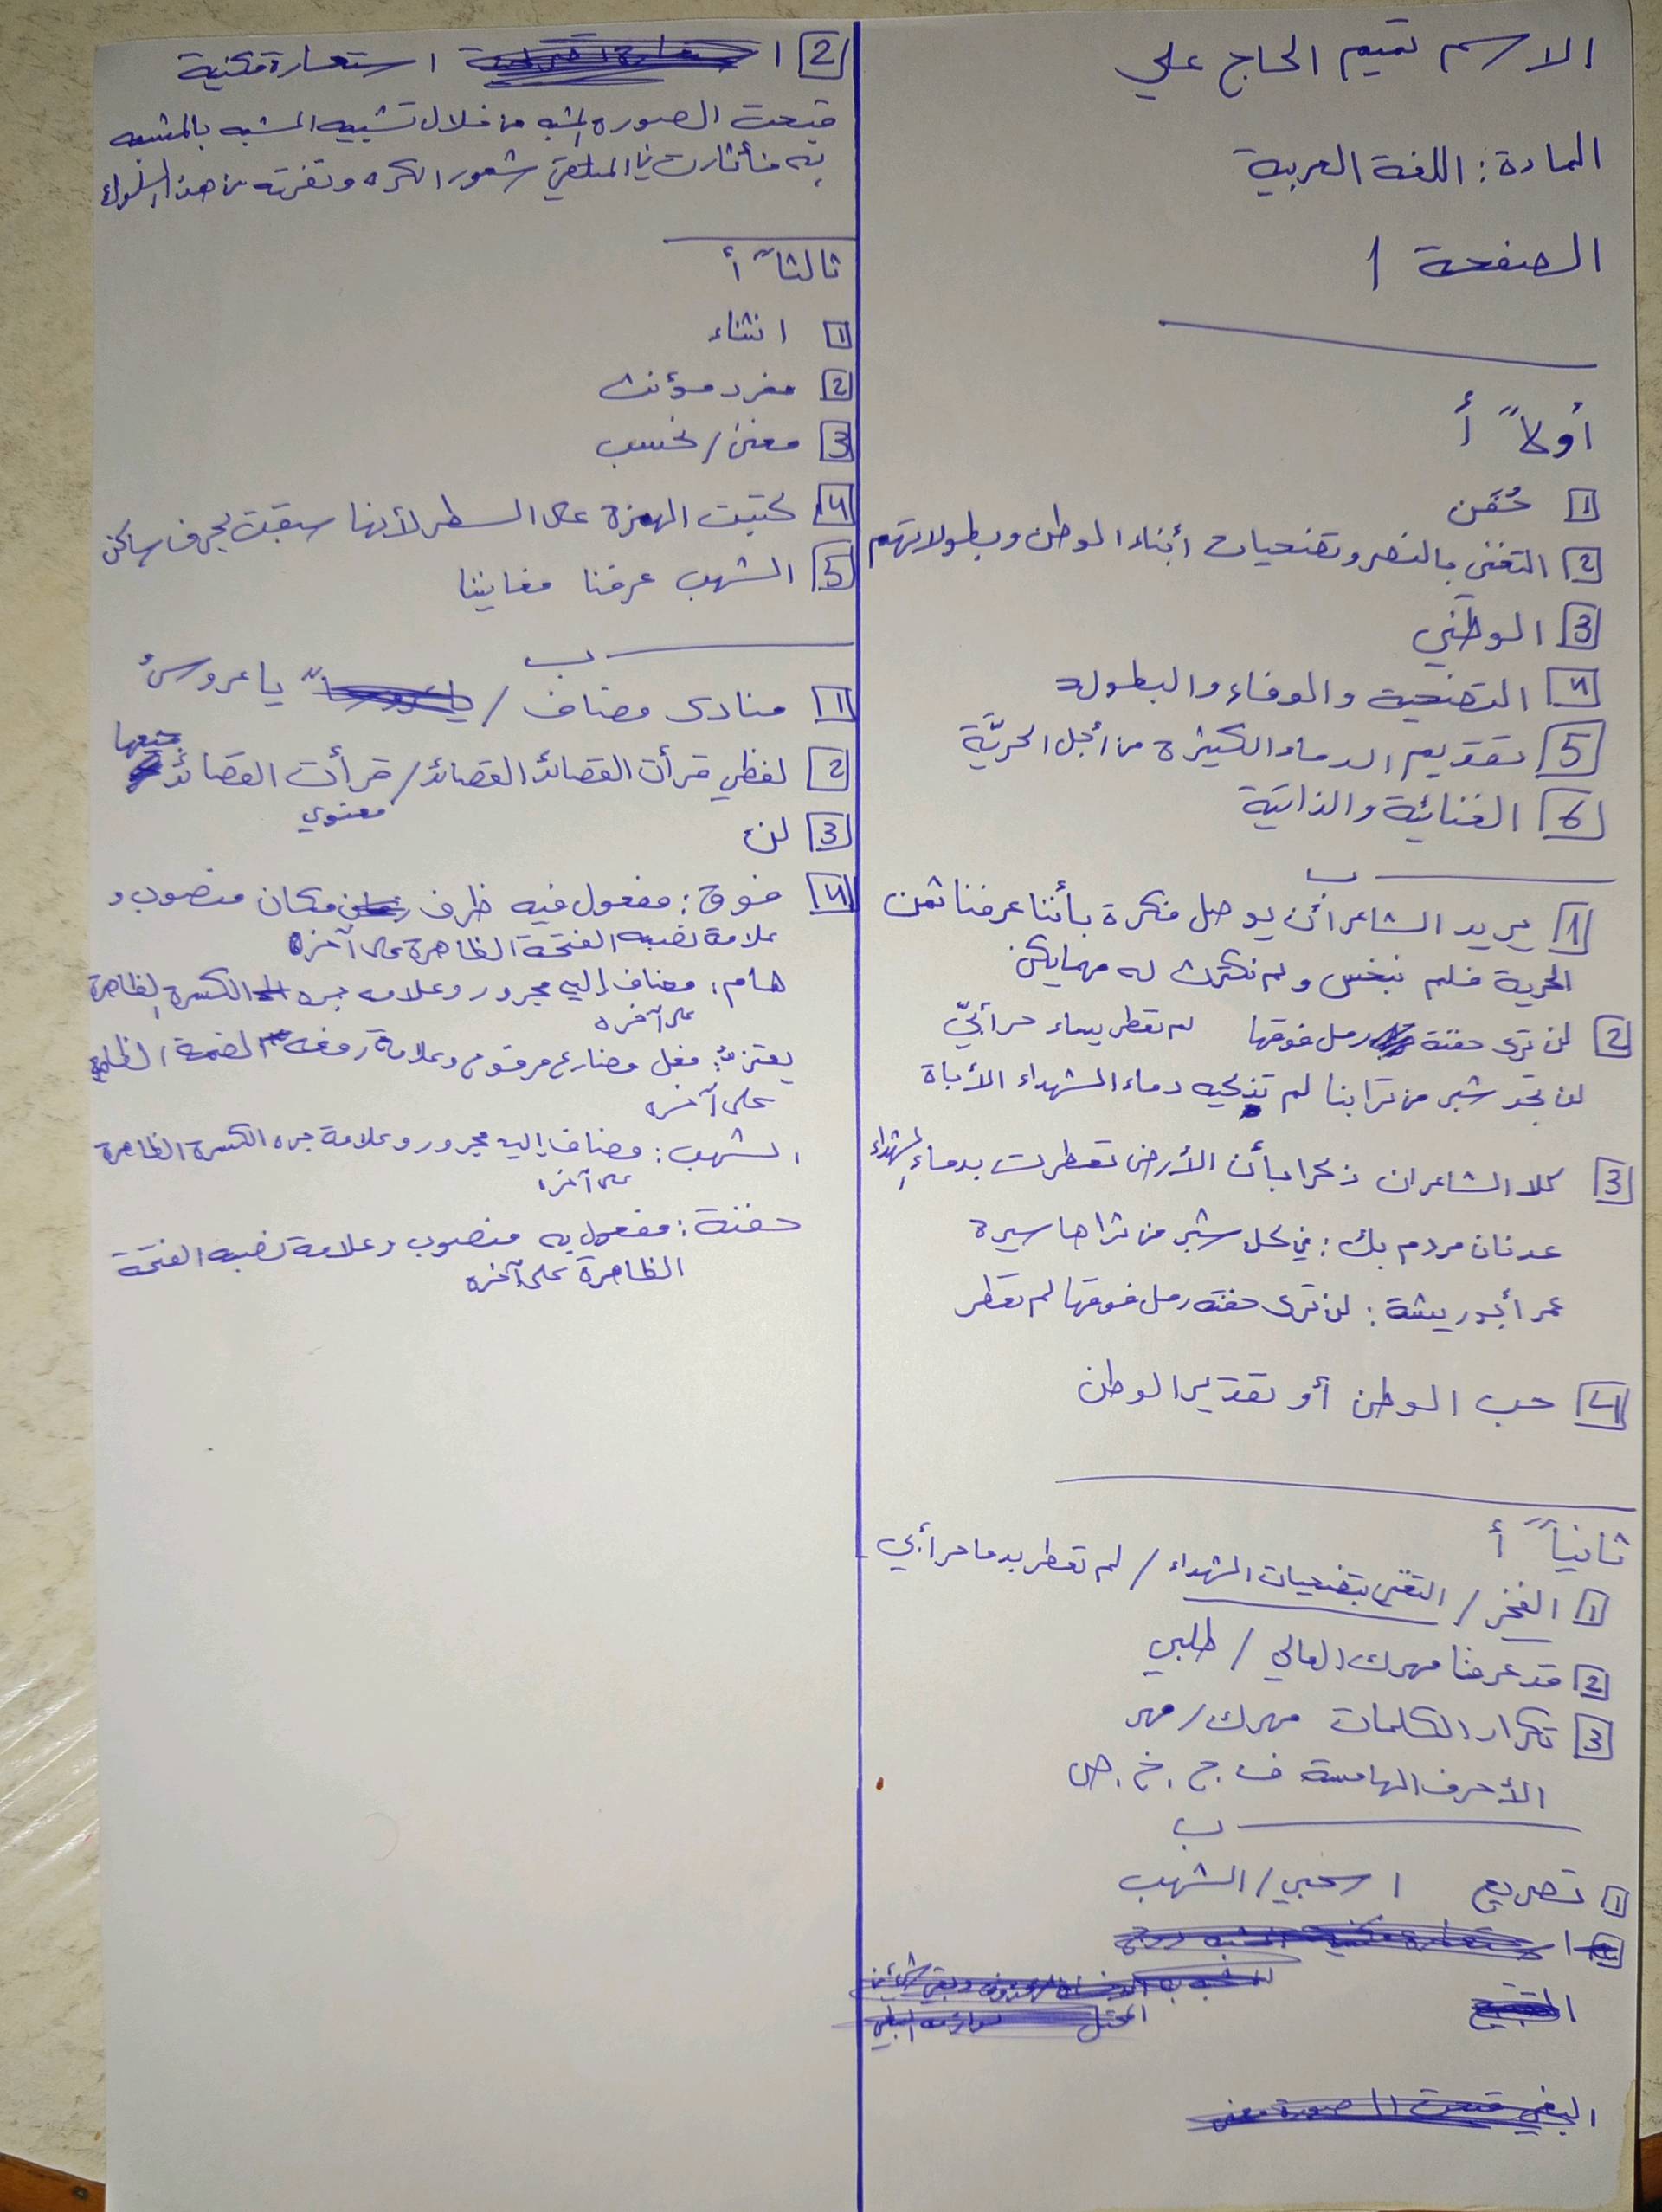 الاسم تميم الحاج علي
المادة: اللغة العربية
الصفحة 1
أولاً أ
1 حُقَن
2 التغني بالنصر وتضحيات أبناء الوطن وبطولاتهم
3 الوطني
4 التضحية والوفاء والبطولة
5 تقديم الدماء الكثيرة من أجل الحريَّة
6 الغنائية والذاتية
ب
1 يريد الشاعر أن يوصل فكرة بأننا عرفنا ثمن
الحرية فلم نبخس ولم نكترث له مهما يكن
2 لن ترى حفنة رمل فوقها لم تعطر بدماء حر أبيّ
لن تجد شبر من ترابنا لم تزكيه دماء الشهداء الأباة
3 كلا الشاعران ذكرا بأن الأرض تعطرت بدماء الشهداء
عدنان مردم بك: في كل شبر من ثراها سيرة
عمر أبو ريشة: لن ترى حفنة رمل فوقها لم تعطر
4 حب الوطن أو تقدير الوطن
ثانياً أ
1 الفخر / التغني بتضحيات الشهداء / لم تعطر بدما حر أبي
2 قد عرفنا مهرك الغالي / طلبي
3 تكرار الكلمات مهرك / مهر
الأحرف الهامسة ف. ح. خ. ص
ب
1 تصريع اسحبي / الشهب
2 استعارة مكنية
قبحت الصورة المشبه من خلال تشبيه المشبه بالمشبه
به فأثارت في المتلقي شعور الكره ونفرته من هذا السلوك
ثالثاً أ
1 انثناء
2 مفرد مؤنث
3 معنى / نحسب
4 كتبت الهمزة على السطر لأنها سبقت بحرف ساكن
5 الشهب عرفنا مغانينا
ب
1 منادى مضاف / يا عروسُ
2 لفظي قرأت القصائد القصائد / قرأت القصائد جميعها
معنوي
3 لن
4 فوق: مفعول فيه ظرف مكان منصوب و
علامة نصبه الفتحة الظاهرة على آخره
هام: مضاف إليه مجرور وعلامة جره الكسرة الظاهرة
على آخره
يعتز: فعل مضارع مرفوع وعلامة رفعه الضمة الظاهرة
على آخره
الشهب: مضاف إليه مجرور وعلامة جره الكسرة الظاهرة
على آخره
حفنة: مفعول به منصوب وعلامة نصبه الفتحة
الظاهرة على آخره